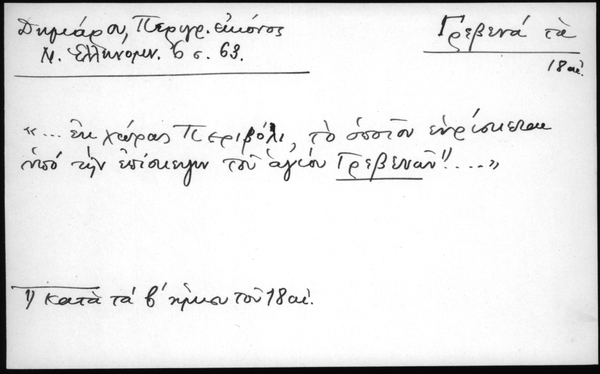 Δημάρου, Περιγρ. εἰκόνος
Ν. Ἑλληνομν. 6 σ. 63.
Γρεβενά τὰ
18 αἰ.
«... ἐκ χώρας Περιβόλι, τὸ ὁποῖον εὑρίσκεται
ὑπό τὴν ἐπίσκεψιν τοῦ ἁγίου Γρεβενῶν¹⁾....»
1) Κατὰ τὰ β΄ ἥμισυ τοῦ 18 αἰ.